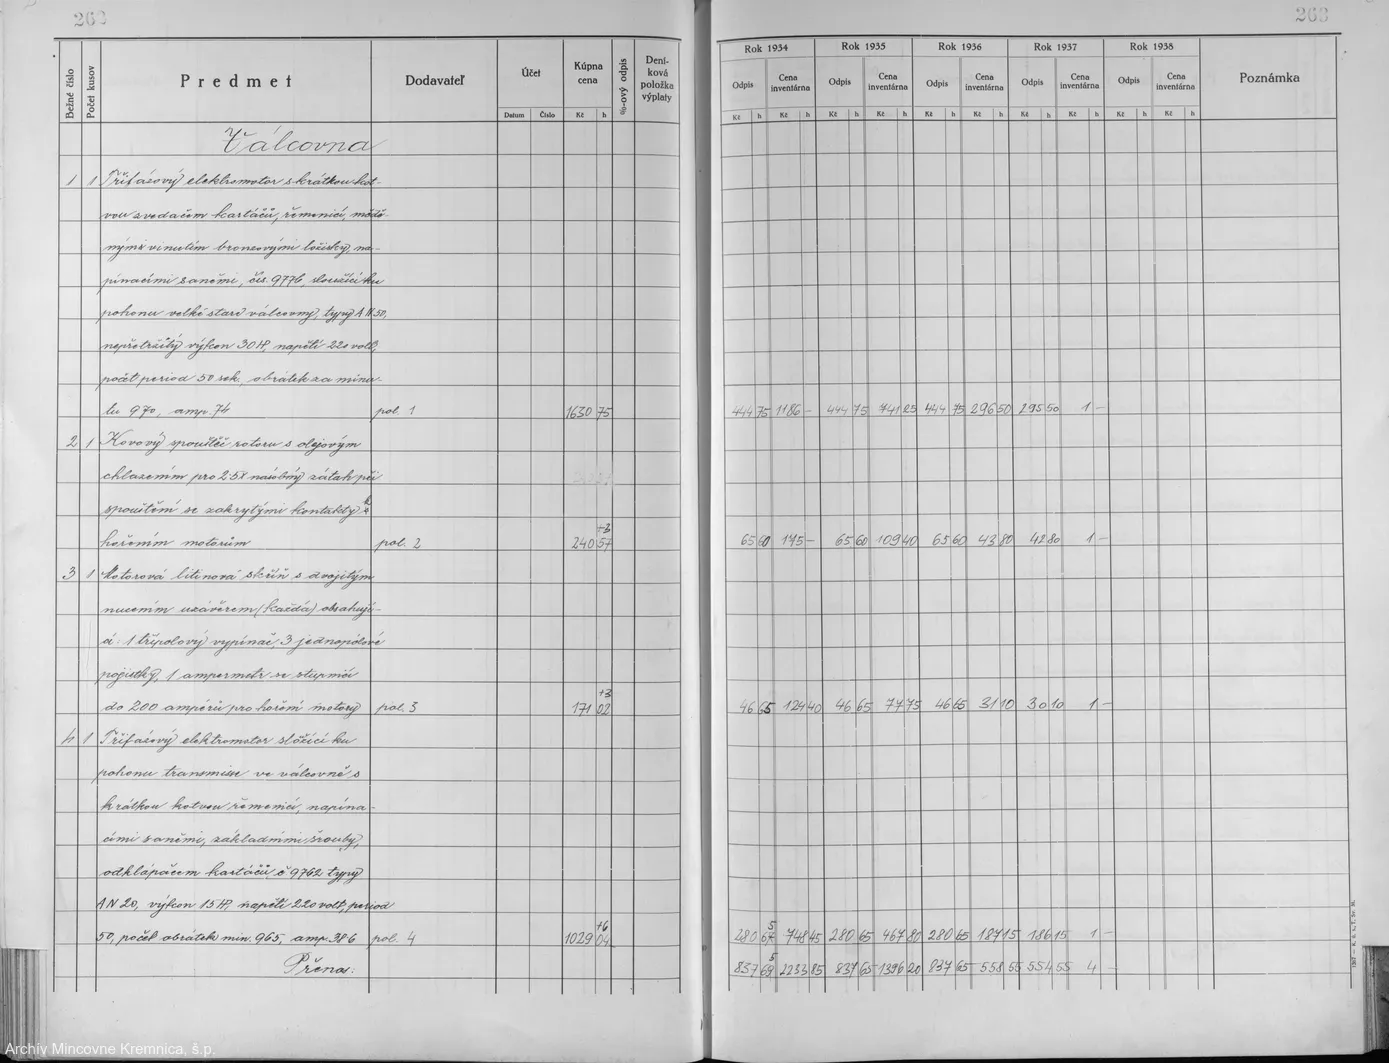 263
263
Bežné číslo
Počet kusov
Predmet
Dodavateľ
Účet
Datum
Číslo
Kúpna cena
Kč
h
%-ový odpis
Deníková položka výplaty
Rok 1934
Rok 1935
Rok 1936
Rok 1937
Rok 1938
Odpis Cena inventárna Odpis Cena inventárna Odpis Cena inventárna Odpis Cena inventárna Odpis Cena inventárna
Poznámka
Kč h Kč h Kč h Kč h Kč h Kč h Kč h Kč h Kč h Kč h
Válcovna
1 1 Třífázový elektromotor s krátkou kot-
vou zvedačem kartáčů, řemenicí, mědě-
nými vinutím bronzovými ložisky, na-
pínacími saněmi, čís. 9776, sloužící ku
pohonu velké staré válcovny, typy AN 50,
nepřetržitý výkon 30 HP, napětí 220 volt,
počet period 50 sek., obrátek za minu-
tu 970, amp. 74 pol. 1 1630 75 444 75 1186 – 444 75 741 25 444 75 296 50 295 50 1 –
2 1 Kovový spouštěč rotoru s olejovým
chlazením pro 2 5x násobný zátah při
spouštění se zakrytými kontakty k
hořením motorům pol. 2 240 57 +3 65 60 175 – 65 60 109 40 65 60 43 80 42 80 1 –
3 1 Motorová litinová skříň s dvojitým
nuceným uzávěrem (každá) obsahují-
cí: 1 třípolový vypínač, 3 jednopólové
pojistky, 1 ampermetr se stupnicí
do 200 ampérů pro hoření motory pol. 3 171 02 +3 46 65 124 40 46 65 77 75 46 65 31 10 30 10 1 –
4 1 Třífázový elektromotor složící ku
pohonu transmisse ve válcovně s
krátkou kotvou řemenicí, napína-
cími saněmi, základními šrouby,
odklápěčem kartáčů, č 9762 typy
AN 20, výkon 15 HP, napětí 220 volt, period
50, počet obrátek min. 965, amp. 38 6 pol. 4 1029 04 +6 280 67 5 748 45 280 65 467 80 280 65 187 15 186 15 1 –
Přena: 837 69 5 2233 85 837 65 1396 20 837 65 558 55 554 55 4 –
Archív Mincovne Kremnica, š.p.